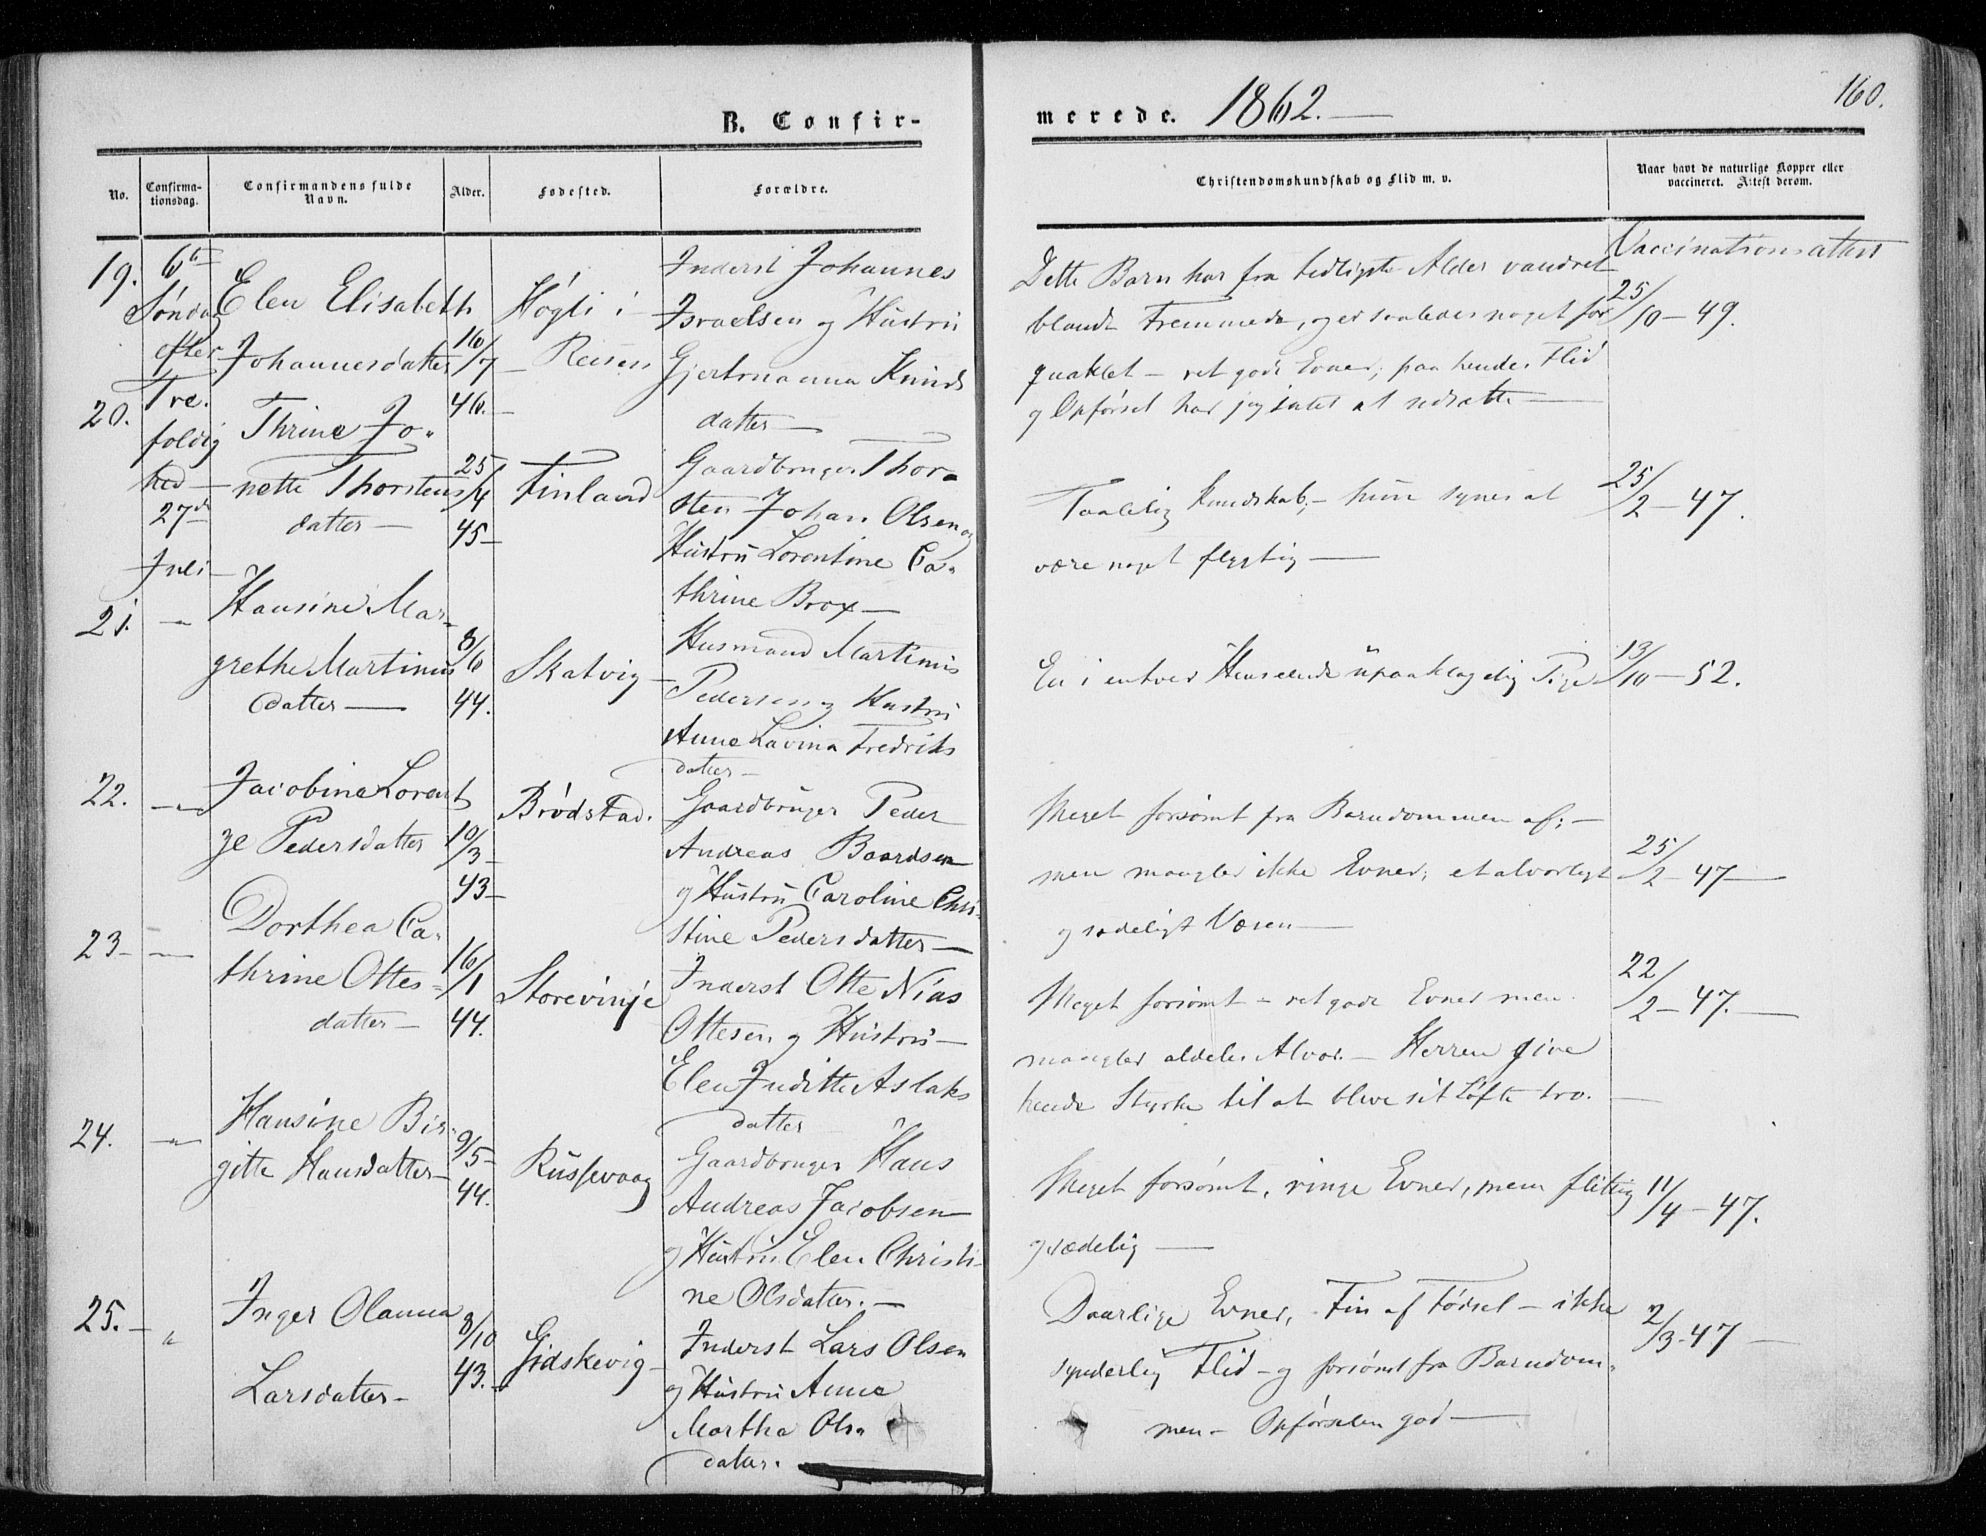 160.
B. Confirmerede. 1862.—
No.
Confirma-
tionsdag.
Confirmandens fulde
Navn.
Alder.
Fødested.
Forældre.
Christendomskundskab og Flid m. v.
Naar havt de naturlige Kopper eller
vaccineret. Attest derom.
19.
6te
Søndag
efter
Tre.
foldig
hed —
27de
Juli —
Elen Elisabeth
Johannesdatter
16/7 —
46. —
Høgli i
Reisen
Inderst Johannes
Israelsen og Hustru
Gjertruanna Knuds
datter —
Dette Barn har fra tidligste Alder vandret
blandt Fremmede, og er saaledes noget for
quaklet — ret gode Evner; paa hendes Flid
og Opførsel har jeg intet at udsætte —
Vaccinationsattest
25/10 — 49.
20.
Thrine Jo-
nette Thorstens
datter —
25/4
45 —
Finland
Gaardbruger Thor-
sten Johan Olsen og
Hustru Lorentine Ca-
thrine Brox —
Taalelig Kundskab; — hun synes at
være noget flygtig —
25/2 — 47.
21. — " —
Hansine Mar-
grethe Martinus
datter —
8/6
44.
Skatvig —
Husmand Martinus
Pedersen og Hustru
Anne Lavina Fredriks
datter —
En i enhver Henseende upaaklagelig Pige
13/10 — 52.
22. — " —
Jacobine Lorent
ze Pedersdatter
10/3 —
43 —
Brødstad.
Gaardbruger Peder
Andreas Baardsen
og Hustru Caroline Chri-
stine Pedersdatter —
Meget forsømt fra Barndommen af; —
men mangler ikke Evner; et alvorligt
og sædeligt Væsen —
25/2 — 47 —
23 — " —
Dorthea Ca-
thrine Ottes-
datter —
16/1
44.
Storevinje
Inderst Otte Nias
Ottesen og Hustru —
Elen Judithe Aslaks
datter
Meget forsømt — ret gode Evner men
mangler aldeles Alvor. — Herren give
hende Styrke til at blive sit Løfte tro. —
22/2 — 47. —
24. — " —
Hansine Bir-
gitte Hansdatter —
9/5 —
44.
Russevaag
Gaardbruger Hans
Andreas Jacobsen
og Hustru Elen Christi-
ne Olsdatter. —
Meget forsømt, ringe Evner, men flittig
og sædelig —
11/4 — 47.
25. — "
Inger Olanna
Larsdatter —
8/10
43. —
Gidskevig —
Inderst Lars Olsen
og Hustru Anne
Martha Ols-
datter.
Daarlige Evner, Fin af Fødsel — ikke
synderlig Flid — og forsømt fra Barndom-
men — Opførselen god —
2/3 — 47 —